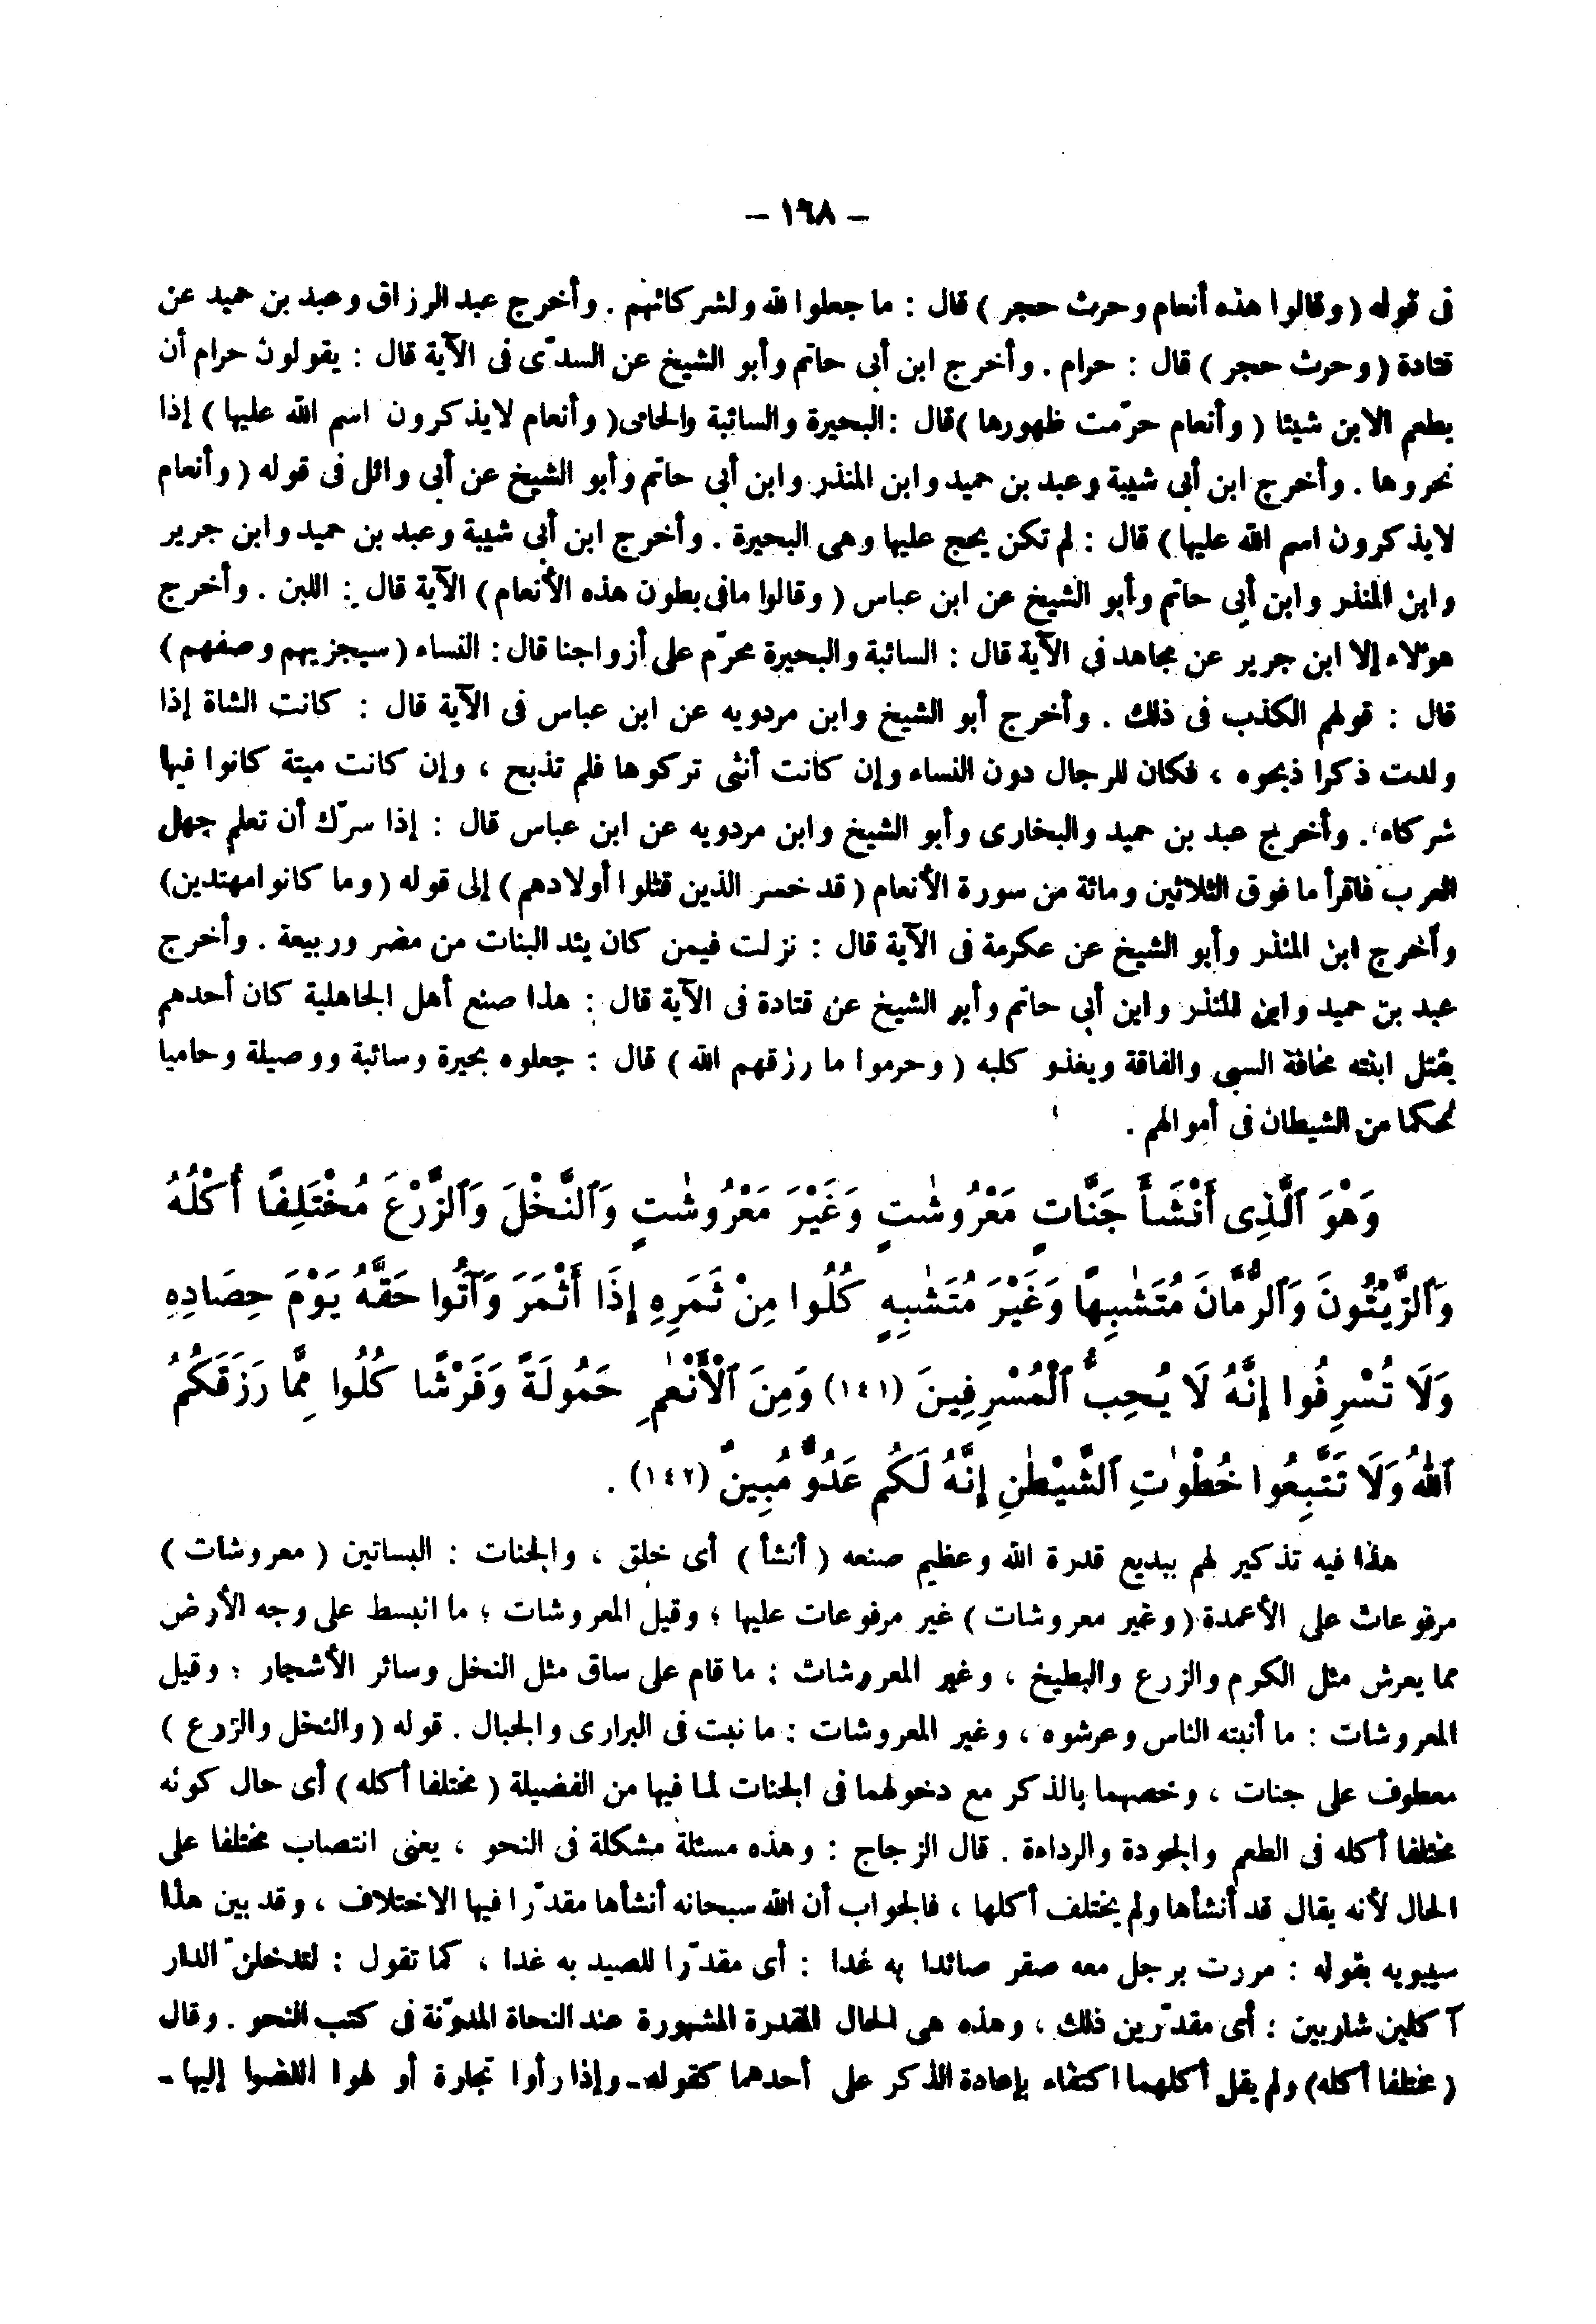 – ١٦٨ –
فى قوله ( وقالوا هذه أنعام وحرث حجر ) قال : ما جعلوا لله ولشركائهم . وأخرج عبد الرزاق وعبد بن حميد عن
قتادة ( وحرث حجر ) قال : حرام . وأخرج ابن أبى حاتم وأبو الشيخ عن السدّى فى الآية قال : يقولون حرام أن
يطعم الابن شيئا ( وأنعام حرّمت ظهورها ) قال : البحيرة والسائبة والحامى ( وأنعام لا يذكرون اسم الله عليها ) إذا
نحروها . وأخرج ابن أبى شيبة وعبد بن حميد وابن المنذر وابن أبى حاتم وأبو الشيخ عن أبى وائل فى قوله ( وأنعام
لا يذكرون اسم الله عليها ) قال : لم تكن يحج عليها وهى البحيرة . وأخرج ابن أبى شيبة وعبد بن حميد وابن جرير
وابن المنذر وابن أبى حاتم وأبو الشيخ عن ابن عباس ( وقالوا ما فى بطون هذه الأنعام ) الآية قال : اللبن . وأخرج
هؤلاء إلا ابن جرير عن مجاهد فى الآية قال : السائبة والبحيرة محرّم على أزواجنا قال : النساء ( سيجزيهم وصفهم )
قال : قولهم الكذب فى ذلك . وأخرج أبو الشيخ وابن مردويه عن ابن عباس فى الآية قال : كانت الشاة إذا
ولدت ذكرا ذبحوه ، فكان للرجال دون النساء وإن كانت أنثى تركوها فلم تذبح ، وإن كانت ميتة كانوا فيها
شركاء . وأخرج عبد بن حميد والبخارى وأبو الشيخ وابن مردويه عن ابن عباس قال : إذا سرّك أن تعلم جهل
العرب فاقرأ ما فوق الثلاثين ومائة من سورة الأنعام ( قد خسر الذين قتلوا أولادهم ) إلى قوله ( وما كانوا مهتدين )
وأخرج ابن المنذر وأبو الشيخ عن عكرمة فى الآية قال : نزلت فيمن كان يئد البنات من مضر وربيعة . وأخرج
عبد بن حميد وابن المنذر وابن أبى حاتم وأبو الشيخ عن قتادة فى الآية قال : هذا صنع أهل الجاهلية كان أحدهم
يقتل ابنته مخافة السبى والفاقة ويغذو كلبه ( وحرموا ما رزقهم الله ) قال : جعلوه بحيرة وسائبة ووصيلة وحاميا
تحكما من الشيطان فى أموالهم .
وَهْوَ ٱلَّذِى أَنْشَأَ جَنَّاتٍ مَعْرُوشٰتٍ وَغَيْرَ مَعْرُوشٰتٍ وَٱلنَّخْلَ وَٱلزَّرْعَ مُخْتَلِفًا أُكْلُهُ
وَٱلزَّيْتُونَ وَٱلرُّمَّانَ مُتَشٰبِهًا وَغَيْرَ مُتَشٰبِهٍ كُلُوا مِنْ ثَمَرِهِ إِذَا أَثْمَرَ وَآتُوا حَقَّهُ يَوْمَ حِصَادِهِ
وَلَا تُسْرِفُوا إِنَّهُ لَا يُحِبُّ ٱلْمُسْرِفِينَ (١٤١) وَمِنَ ٱلْأَنْعٰمِ حَمُولَةً وَفَرْشًا كُلُوا مِمَّا رَزَقَكُمُ
ٱللهُ وَلَا تَتَّبِعُوا خُطْوٰتِ ٱلشَّيْطٰنِ إِنَّهُ لَكُم عَدُوٌّ مُبِينٌ (١٤٢) .
هذا فيه تذكير لهم ببديع قدرة الله وعظيم صنعه ( أنشأ ) أى خلق ، والجنات : البساتين ( معروشات )
مرفوعات على الأعمدة ( وغير معروشات ) غير مرفوعات عليها ؛ وقيل المعروشات ؛ ما انبسط على وجه الأرض
مما يعرش مثل الكرم والزرع والبطيخ ، وغير المعروشات : ما قام على ساق مثل النخل وسائر الأشجار ؛ وقيل
المعروشات : ما أنبته الناس وعرشوه ، وغير المعروشات : ما نبت فى البرارى والجبال . قوله ( والنخل والزرع )
معطوف على جنات ، وخصهما بالذكر مع دخولهما فى الجنات لما فيها من الفضيلة ( مختلفا أكله ) أى حال كونه
مختلفا أكله فى الطعم والجودة والرداءة . قال الزجاج : وهذه مسئلة مشكلة فى النحو ، يعنى انتصاب مختلفا على
الحال لأنه يقال قد أنشأها ولم يختلف أكلها ، فالجواب أن الله سبحانه أنشأها مقدّرا فيها الاختلاف ، وقد بين هذا
سيبويه بقوله : مررت برجل معه صقر صائدا به غدا : أى مقدّرا للصيد به غدا ، كما تقول : لتدخلنّ الدار
آكلين شاربين : أى مقدّرين ذلك ، وهذه هى الحال المقدرة المشهورة عند النحاة المدوّنة فى كتب النحو . وقال
( مختلفا أكله ) ولم يقل أكلهما اكتفاء بإعادة الذكر على أحدهما كقوله ـ وإذا رأوا تجارة أو لهوا انفضوا إليها ـ